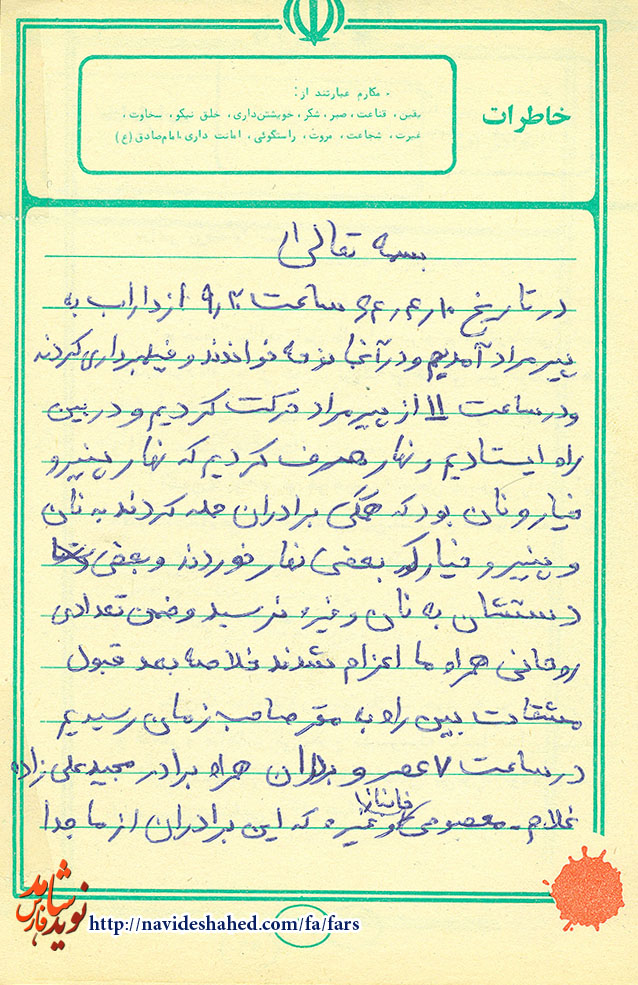 خاطرات
- مکارم عبارتند از:
یقین، قناعت، صبر، شکر، خویشتن‌داری، خلق نیکو، سخاوت،
غیرت، شجاعت، مروت، راستگوئی، امانت داری.امام‌صادق (ع)
بسمه تعالی
در تاریخ ۶۴٫۴٫۱۰ ساعت ۹٫۳۰ از داراب به
پیر مراد آمدیم و در آنجا نوحه خواندند و فیلمبرداری کردند
و در ساعت ۱۱ از پیر مراد حرکت کردیم و در بین
راه ایستادیم و نهار صرف کردیم که نهار پنیر و
خیار و نان بود که همگی برادران حمله کردند به نان
و پنیر و خیار که بعضی نهار خوردند و بعضی
دستشان به نان و غیره نرسید و ضمن تعدادی
روحانی همراه ما اعزام شدند خلاصه بعد قبول
مشقات بین راه به مقر صاحب زمان رسیدیم
در ساعت ۷ عصر و برادران همراه برادر مجید علی زاده
غلام - معصومی و غیره که این برادران از ما جدا
نوید شاهد
فارس
http://navideshahed.com/fa/fars